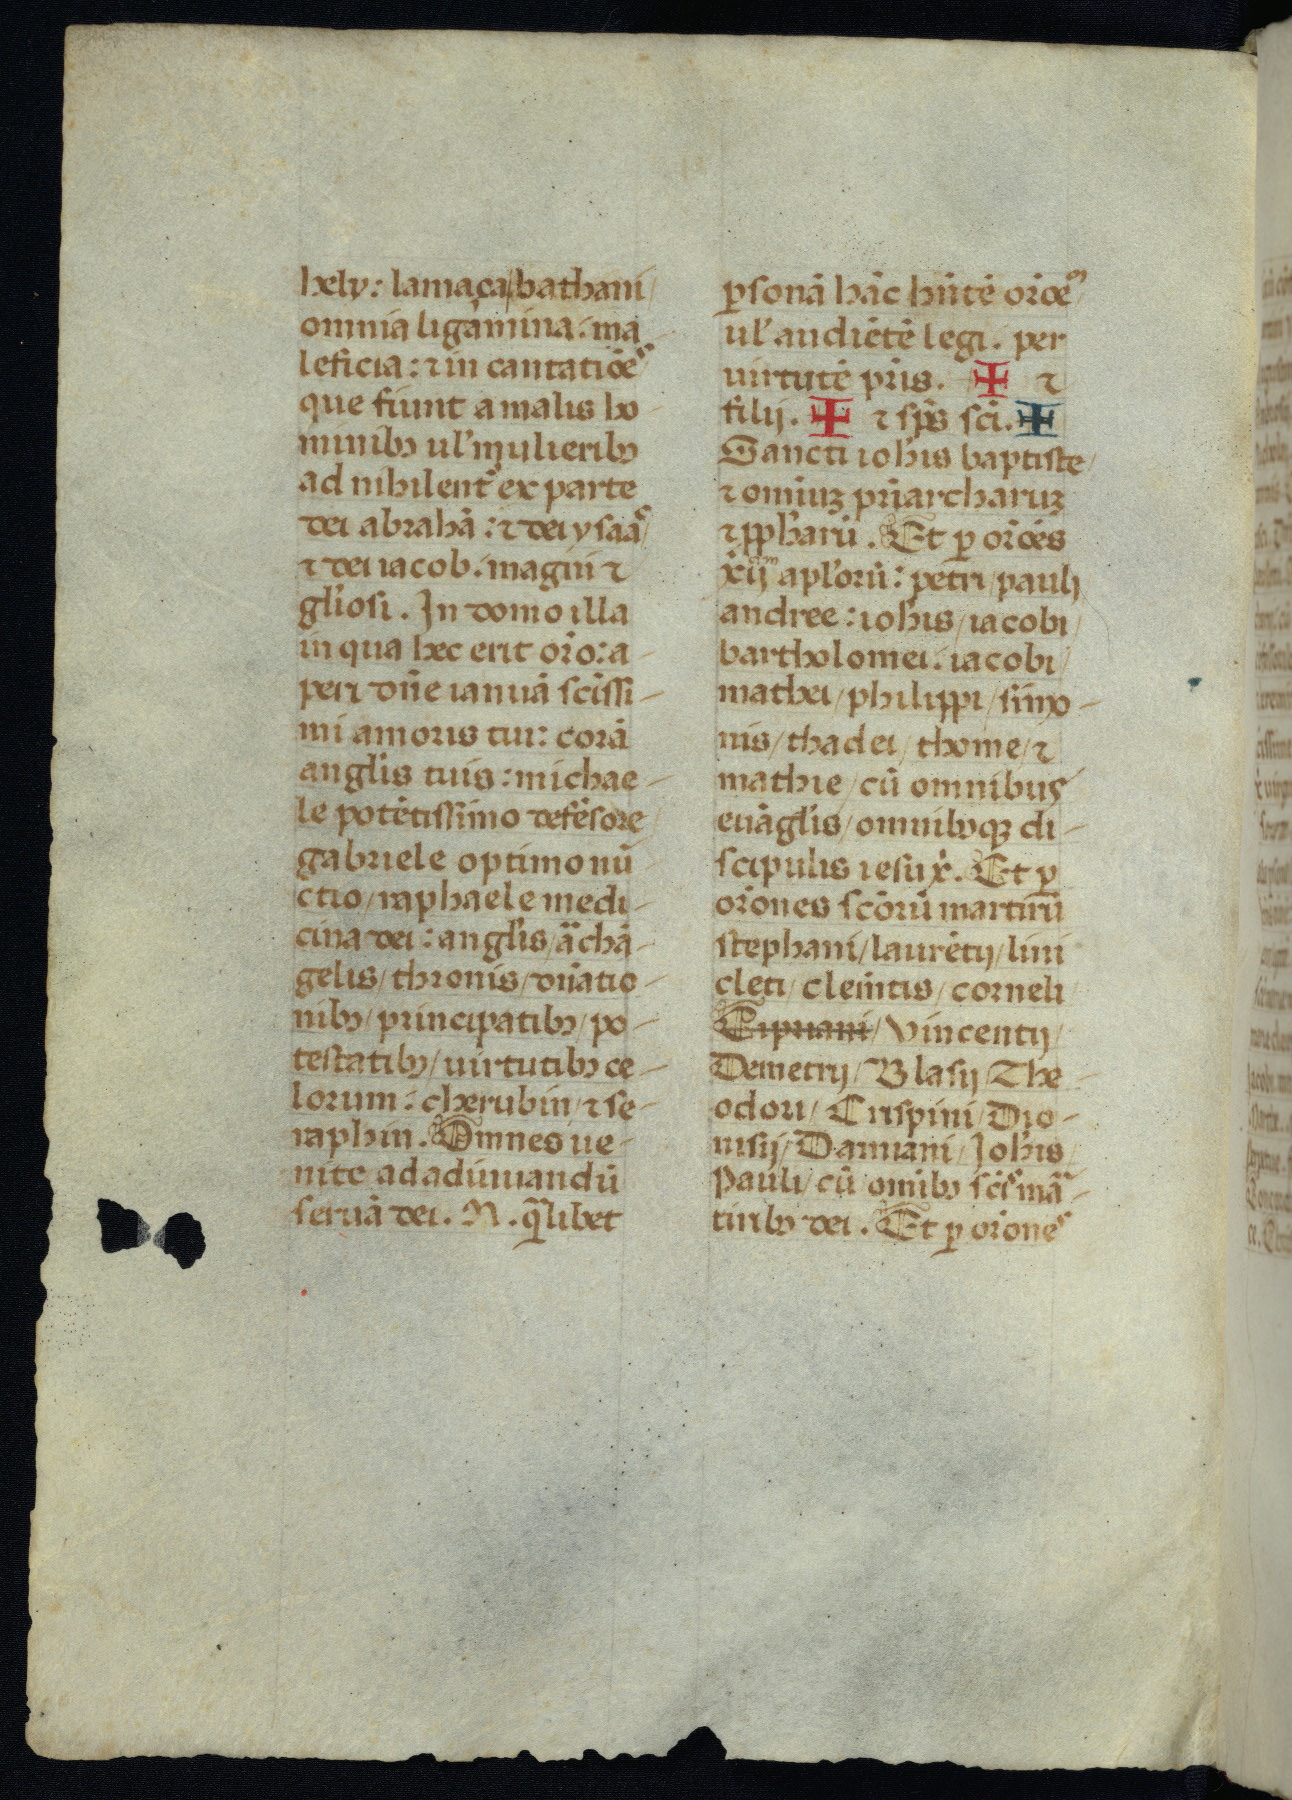 hely: lamaçabathani
omnia ligamina: ma
leficia: ⁊ in cantatiōe
que fiunt a malis ho
minibꝰ ul' mulieribꝰ
ad nihilent̃ ex parte
dei abrahā: ⁊ dei ysaac
⁊ dei iacob. magni ⁊
gl'iosi. In domo illa
in qua hec erit or̃o: a-
peri dñe ianuā sc̃issi-
mi amoris tui: corā
angl'is tuis: michae-
le potētissimo defēsore
gabriele optimo nū-
ctio/ raphaele medi-
cina dei: angl'is/ aͣchā-
gelis/ thronis/ dñatio-
nibꝰ/ principatibꝰ/ po-
testatibꝰ/ uirtutibꝰ ce-
lorum: cherubin/ ⁊ se-
raphin. Omnes ue-
nite ad adiuuandū
seruā dei. N. qͣlibet
ꝑsonā hāc hñtē or̃oēm
ul' audiētē legi. per
uirtutē pr̃is. ✠ ⁊
filij. ✠ ⁊ sp̃s sc̃i. ✠
Sancti ioh'is baptiste/
⁊ omiuꝫ pr̃iarcharuꝫ
⁊ ꝓph'arū. Et ꝑ or̃oēs
xijᵐ apl'orū: petri/ pauli
andree: ioh'is/ iacobi/
bartholomei: iacobi/
mathei/ philippi/ simo-
nis/ thadei/ thome/ ⁊
mathie/ cū omnibus
euāgl'is/ omnibꝰqꝫ di-
scipulis iesu xͥ. Et ꝑ
or̃ones sc̃orū martirū
stephani/ laurētij/ lini
cleti/ clemītis/ corneli
Cipriani/ Vincentij/
Demetrij/ Blasij/ The-
odori/ Crispini/ Dio-
nisij/ Damiani/ Ioh'is/
Pauli/ cū omibꝰ sc̃is maͣ-
tiribꝰ dei. Et ꝑ or̃ones